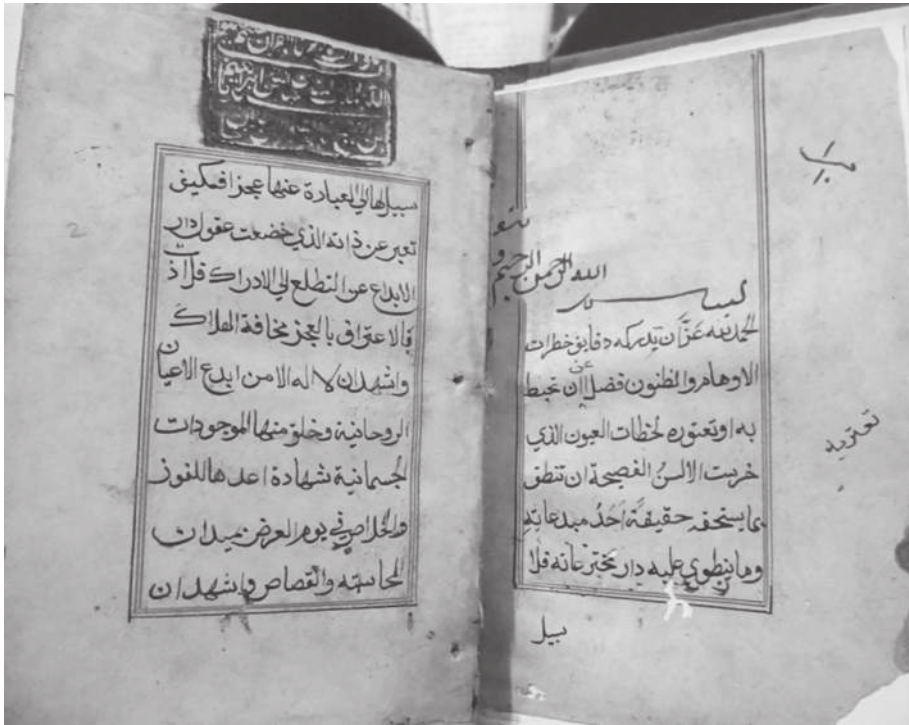 الله الرحمن الرحيم
بســـــم
الحمد لله عز ان تدركه دقايق خطرات
الاوهام والظنون فضلا عن ان تحيط
به او تعتوره لحظات العيون الذي
خرست الالسن الفصيحة ان تنطق
بما يستحقه حقيقة احد مبدعاته
وما ينطوي عليه دار مخترعاته فلا
سبيل
تعتريه
سبيل لها الي العبارة عنها عجزا فكيف
تعبر عن ذاته الذي خضعت عقول دار
الابداع عن التطلع الي الادراك فلاذت
بالاعتراف بالعجز مخافة الهلاك
واشهد ان لا اله الا من ابدع الاعيان
الروحانية وخلق منها الموجودات
الجسمانية شهادة اعدها للفوز
والخلاص في يوم العرض بميدان
المحاسبه والقصاص واشهد ان